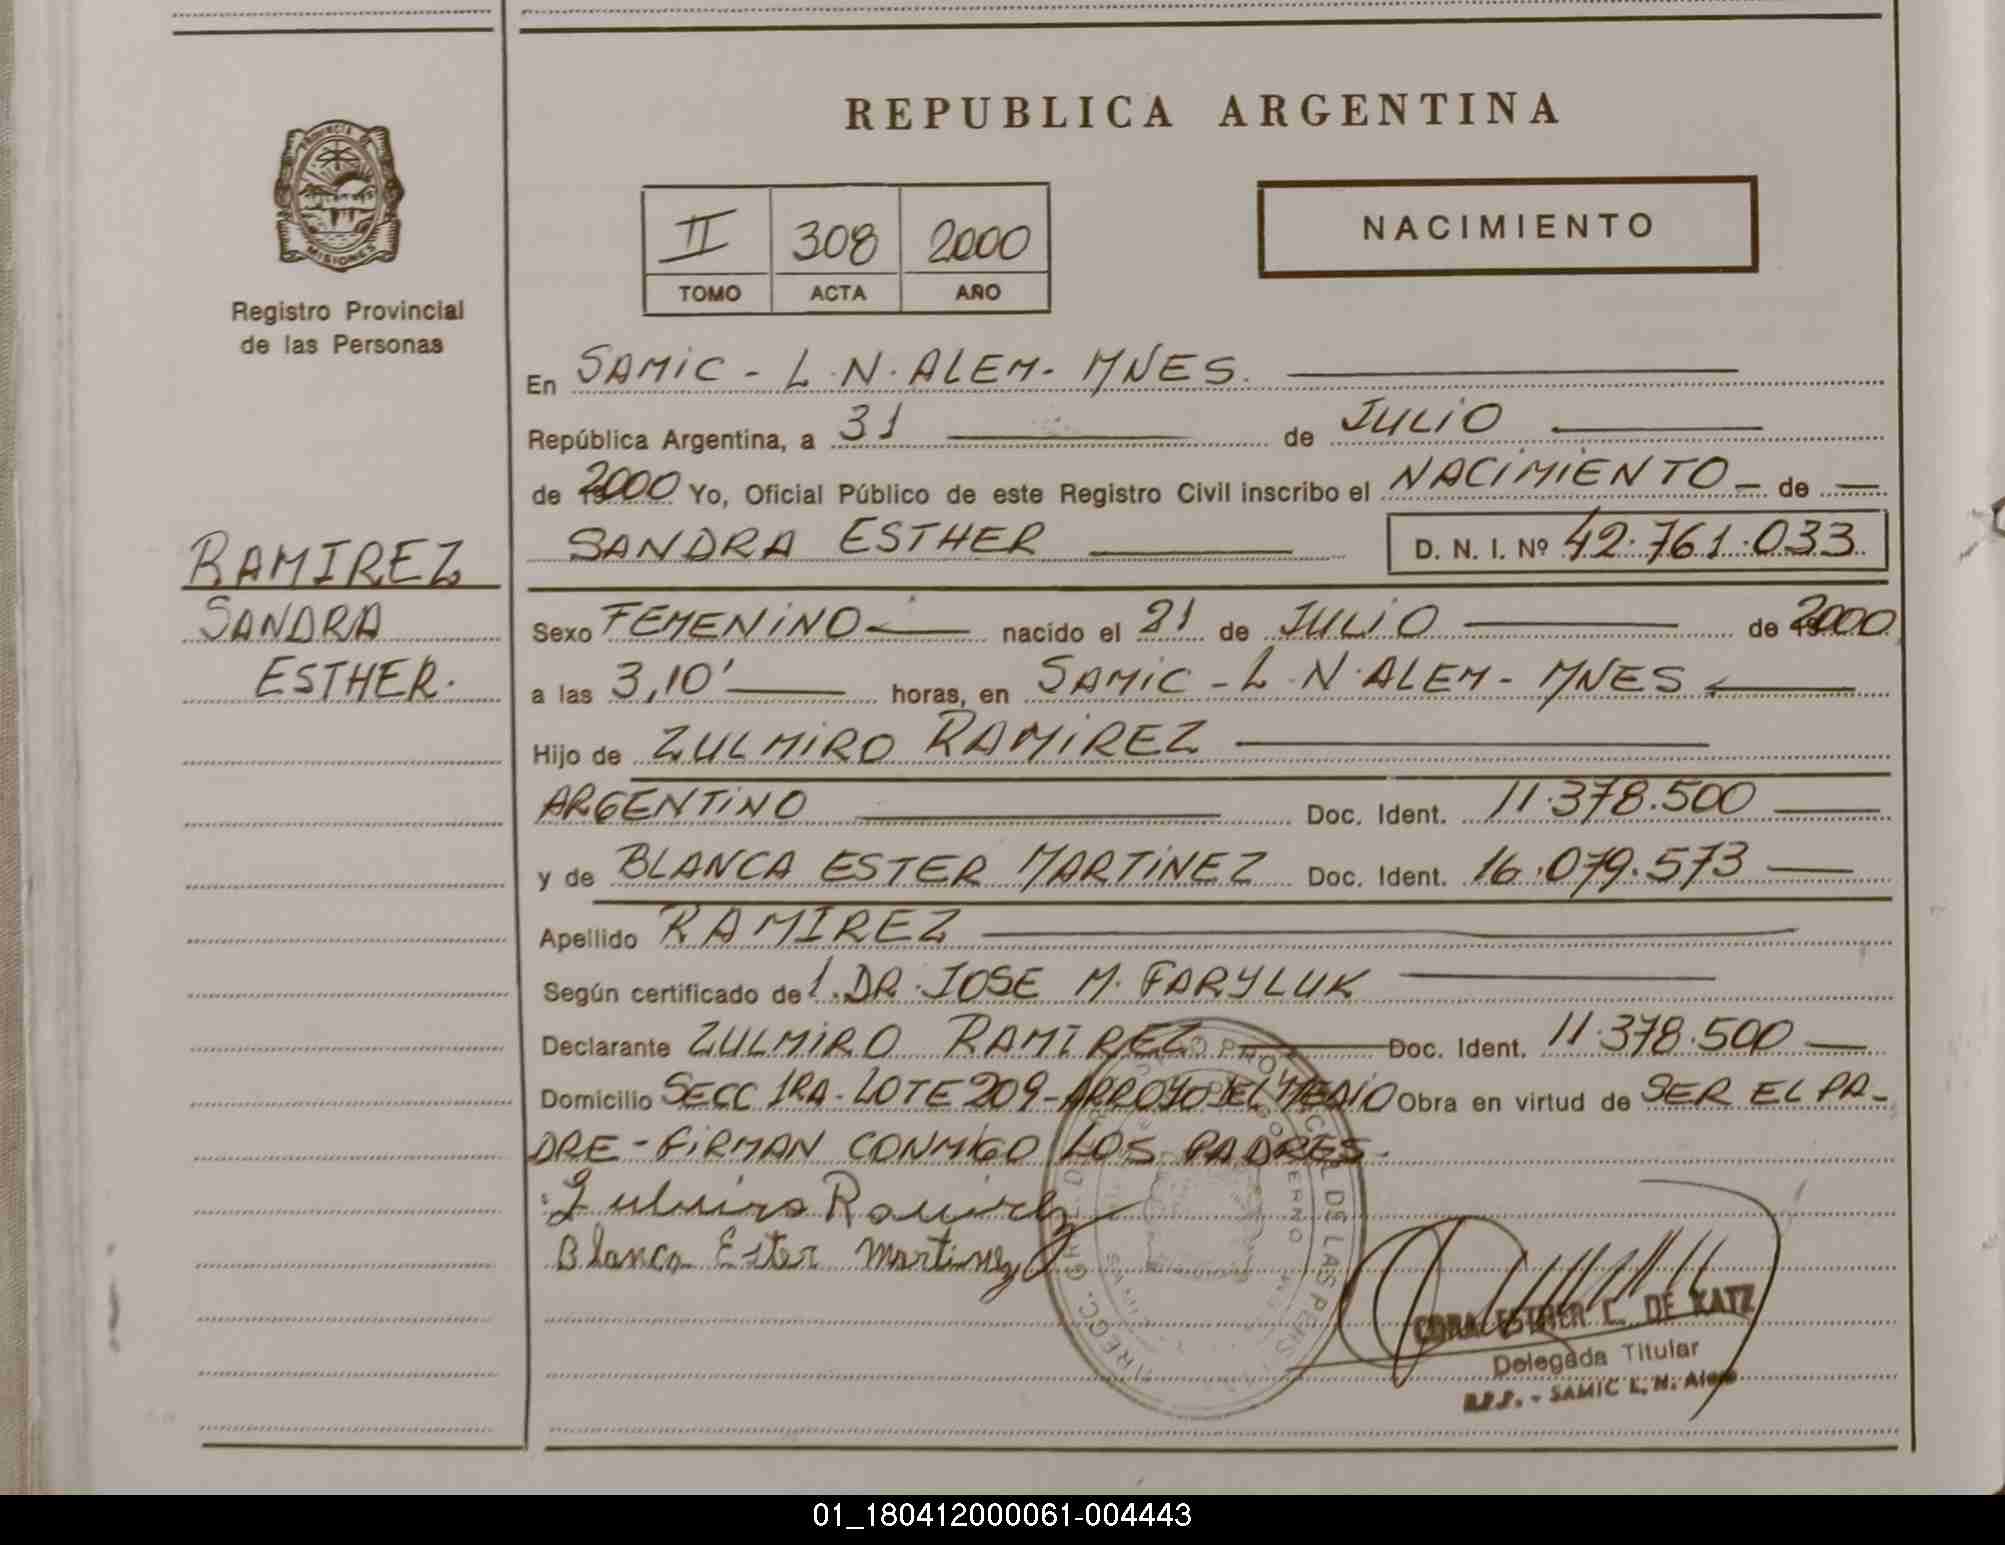 PROVINCIA
MISIONES
Registro Provincial
de las Personas
RAMIREZ
SANDRA
ESTHER.
REPUBLICA ARGENTINA
II 308 2000
TOMO ACTA AÑO
NACIMIENTO
En SAMIC - L.N. ALEM - MNES.
República Argentina, a 31 de JULIO
de 2000 Yo, Oficial Público de este Registro Civil inscribo el NACIMIENTO - de
SANDRA ESTHER D. N. I. Nº 42.761.033
Sexo FEMENINO nacido el 21 de JULIO de 2000
a las 3,10' horas, en SAMIC - L.N. ALEM - MNES
Hijo de ZULMIRO RAMIREZ
ARGENTINO Doc. Ident. 11.378.500
y de BLANCA ESTER MARTINEZ Doc. Ident. 16.079.573
Apellido RAMIREZ
Según certificado del. DR. JOSE M. FARYLUK
Declarante ZULMIRO RAMIREZ Doc. Ident. 11.378.500
Domicilio SECC 1RA - LOTE 209 - ARROYO DEL MEDIO Obra en virtud de SER EL PA-
DRE - FIRMAN CONMIGO LOS PADRES.
Zulmiro Ramirez
Blanca Ester Martinez
DE LAS PERS
CORA ESTHER C. DE KATZ
Delegada Titular
R.P.P. - SAMIC L. N. Alem
01_180412000061-004443